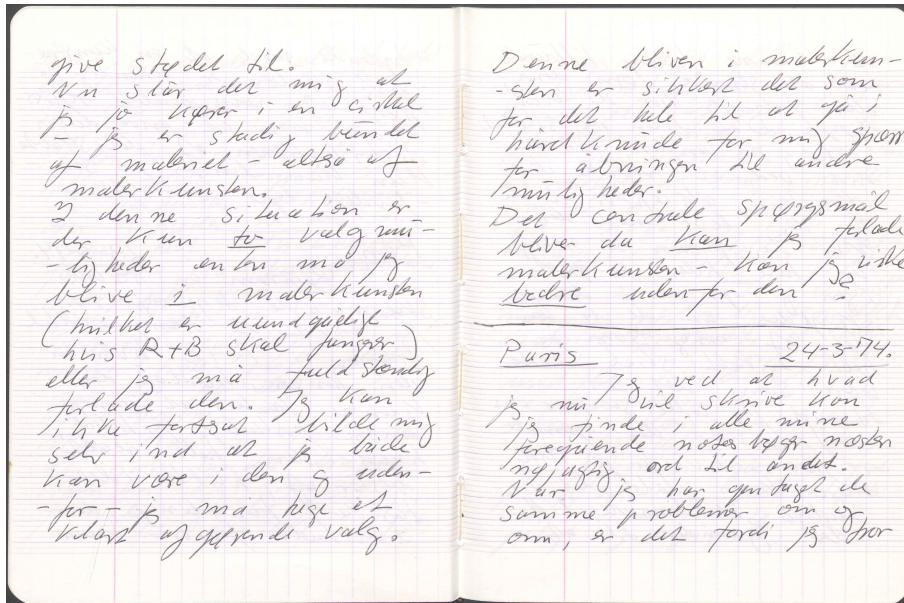 give stedet til.
Nu slår det mig at
jeg jo kører i en cirkel
– jeg er stadig bundet
af maleriet – altså af
malerkunsten.
I denne situation er
der kun to valgmu-
-ligheder enten må jeg
blive i malerkunsten
(hvilket er uundgåeligt
hvis R+B skal fungere)
eller jeg må fuldstændig
forlade den. Jeg kan
ikke fortsat bilde mig
selv ind at jeg både
kan være i den og uden-
-for – jeg må tage et
klart afgørende valg.
Denne bliven i malerkun-
-sten er sikkert det som
får det hele til at gå i
hårdknude for mig spærrer
for åbningen til andre
muligheder.
Det centrale spørgsmål
bliver da kan jeg forlade
malerkunsten – kan jeg virke
bedre udenfor den?
Paris 24-3-74.
Jeg ved at hvad
jeg nu vil skrive kan
jeg finde i alle mine
foregående notesbøger næsten
nøjagtig ord til andet.
Når jeg har gentaget de
samme problemer om og
om, er det fordi jeg tror